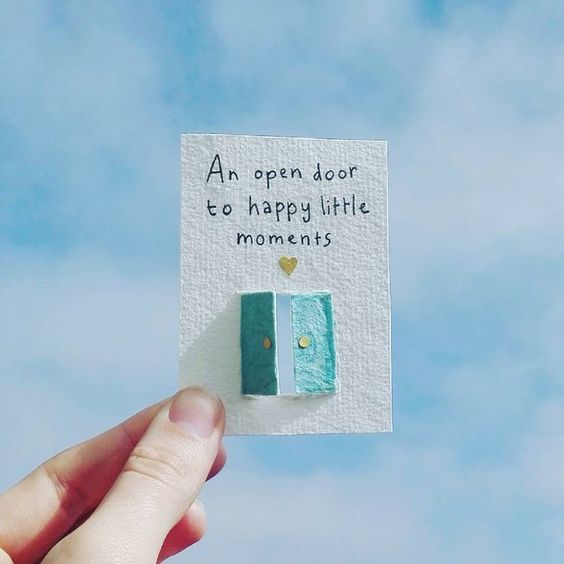 An open door
to happy little
moments